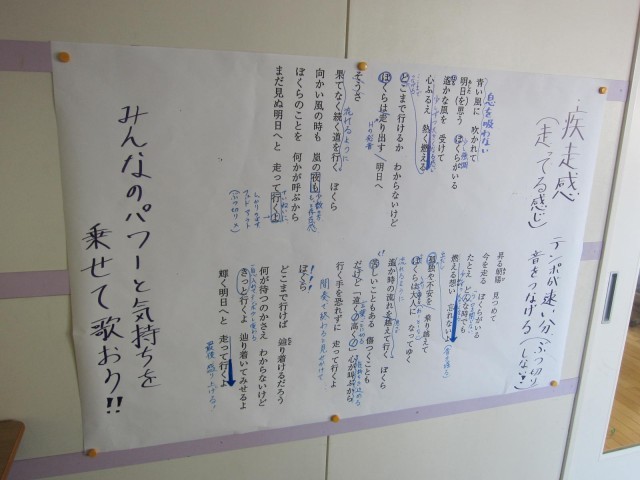 疾走感
(走ってる感じ)
テンポが速い分
音をつなげる(ぶつ切りしない?)
息を吸わない
青い風に 吹かれて
明日を思う ぼくらがいる
遥かな風を 受けて
心ふるえ 熱く燃える
どこまで行けるか わからないけど
ぼくらは走り出す 明日へ
Hの発音
そうさ
果てなく続く道を行く ぼくら
流れるように
向かい風の時も 嵐の夜も
ぼくらのことを 何かが呼ぶから
まだ見ぬ明日へと 走って行くよ
昇る朝陽 見つめて
今を走る ぼくらがいる
たとえ どんな時でも
燃える想い 忘れないよ
孤独や不安を 乗り越えて
ぼくらは大人に なってゆく
遥か時の流れを越えて行く ぼくら
苦しいこともある 傷つくことも
だけど「道」高く 心が叫ぶから
行く手を恐れずに 走って行くよ
間奏が終わると見せかけて
ぼくら
どこまで行けば 辿り着けるだろう
何が待つのかさえ わからないけど
きっと行くよ 辿り着いてみせるよ
輝く明日へと 走って行くよ
最後 盛り上げる!
みんなのパワーと気持ちを
乗せて歌おう!!